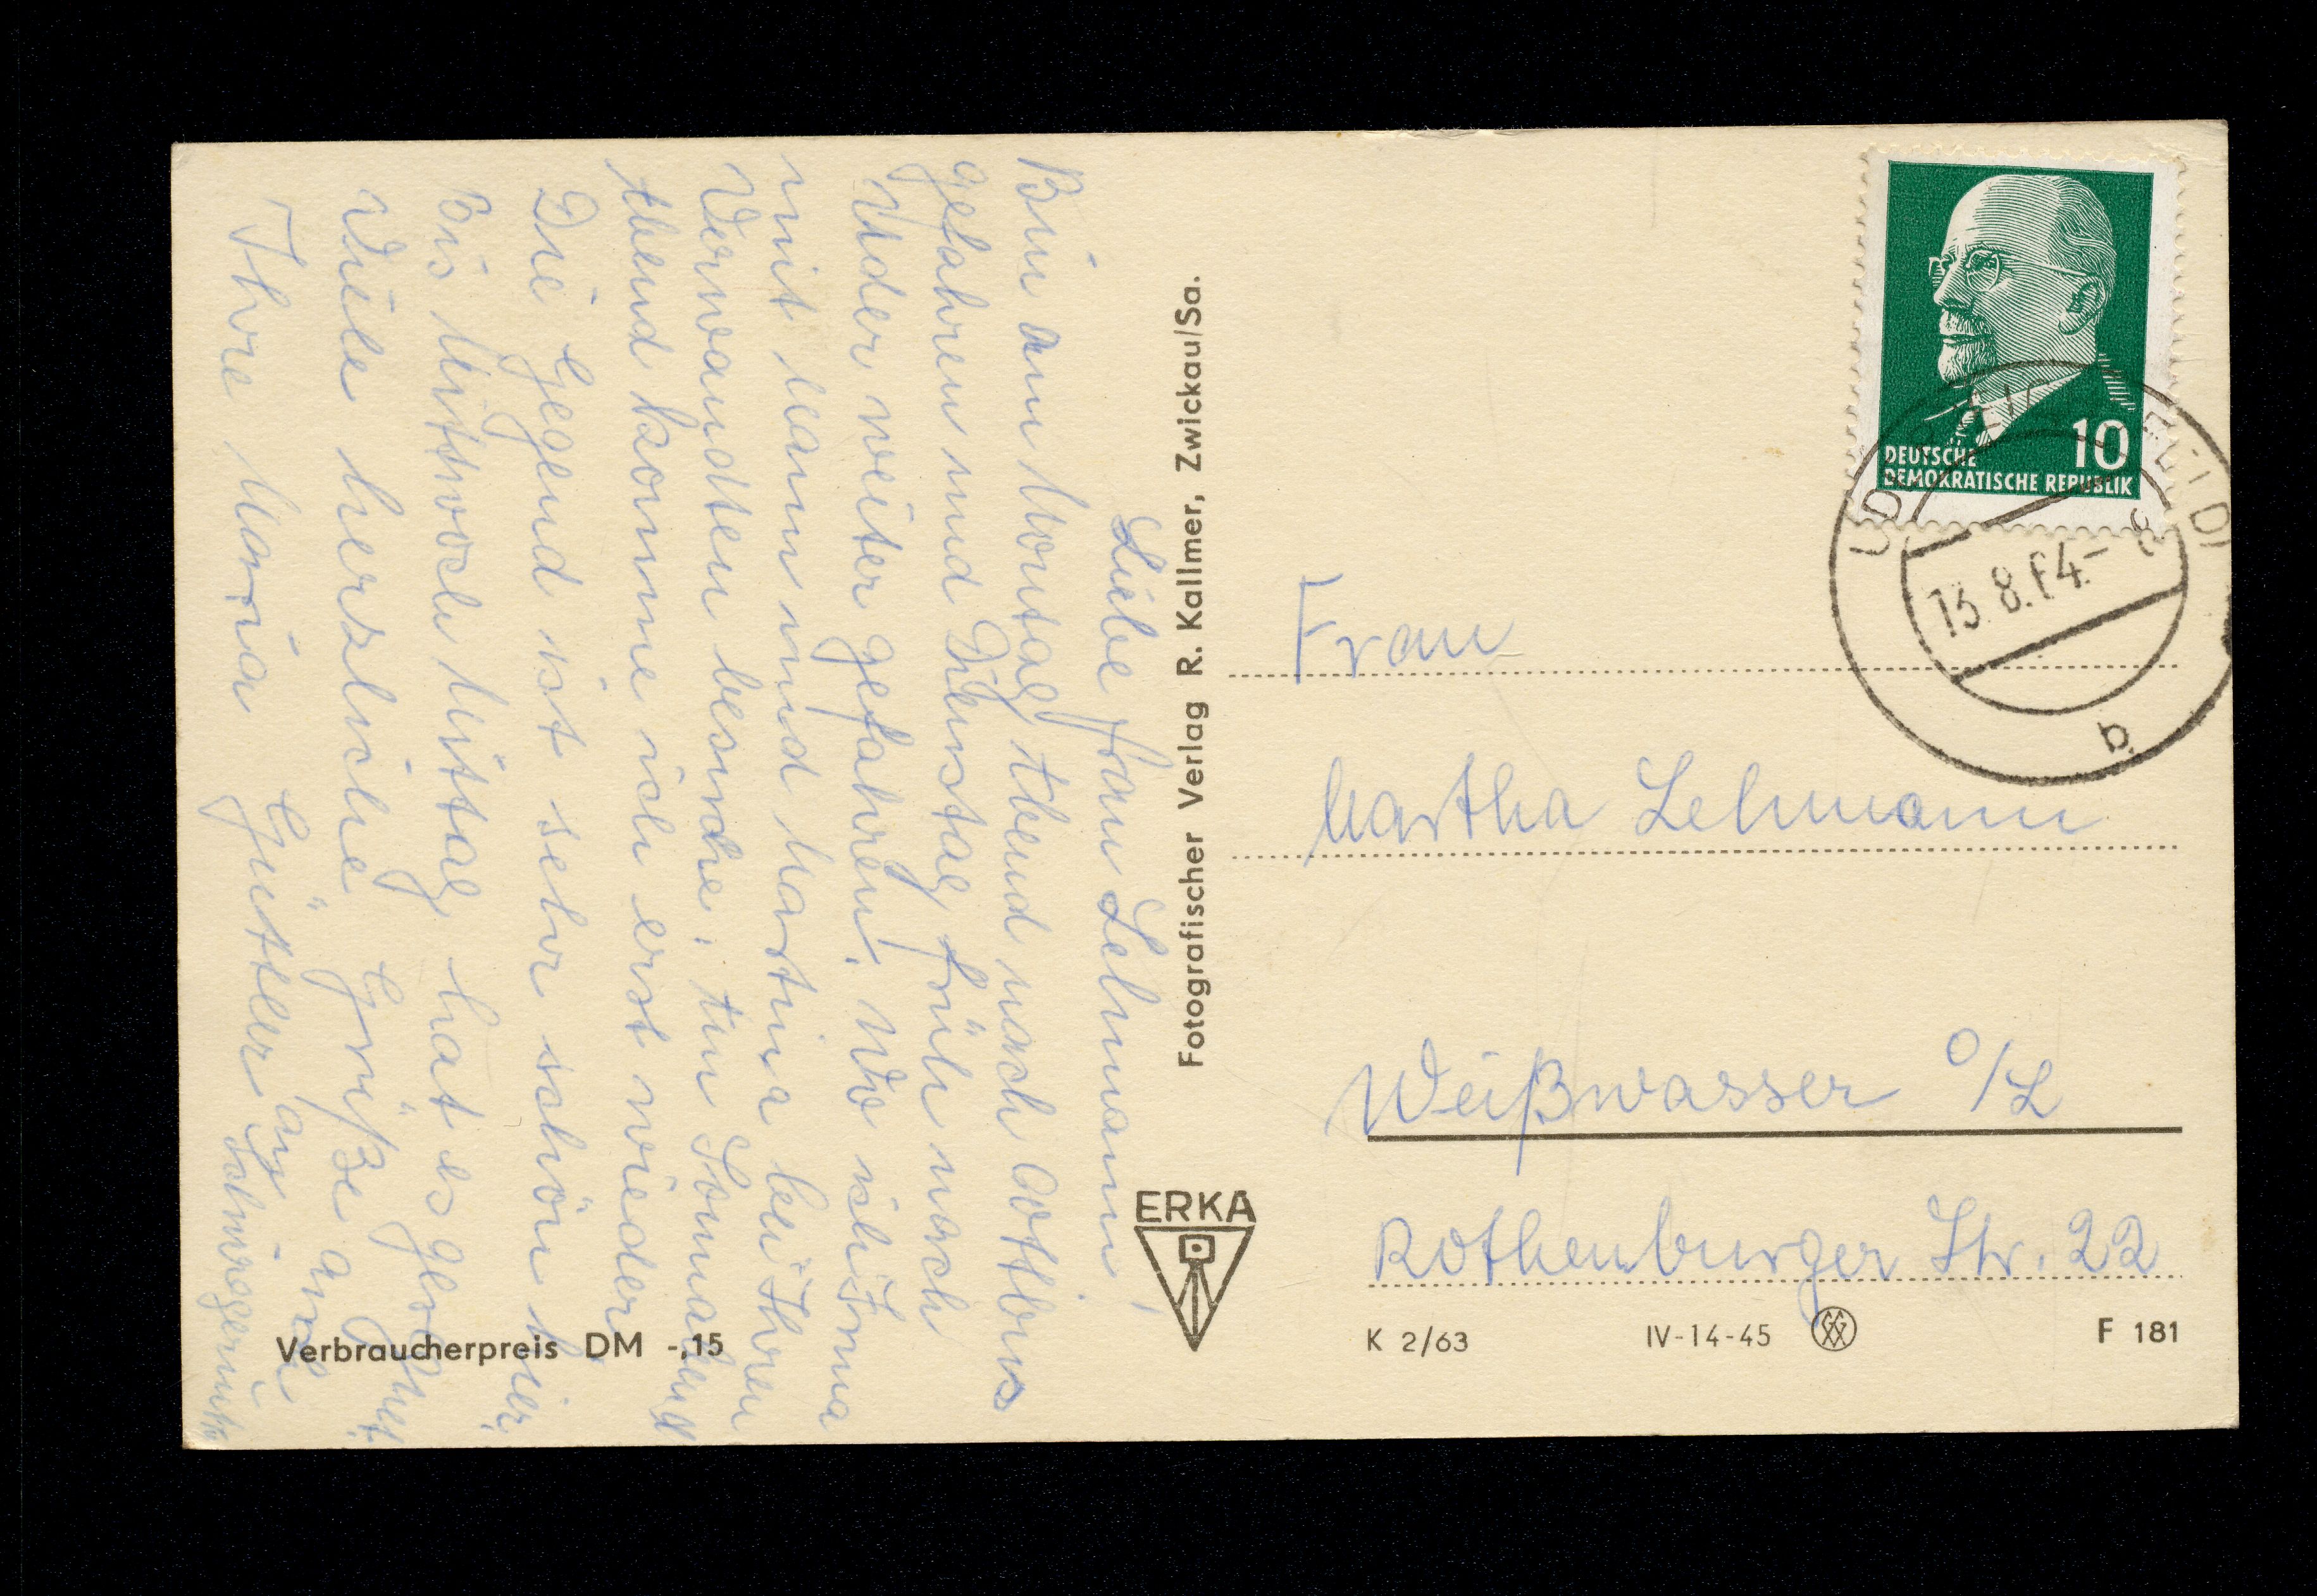 Liebe Frau Lehmann!
Bin am Montag Abend nach Cottbus
gefahren und Dienstag früh nach
Uder weiter gefahren. Wo ich Irma
mit Mann und Martina bei Ihren
Verwandten besuche. Am Sonnabend
Abend komme ich erst wieder.
Die Gegend ist sehr schön hier.
Bis Mittwoch Mittag hat es
Viele herzliche Grüße
Ihre Maria Güttler
an Schwiegermutter
Verbraucherpreis DM -,15
Fotografischer Verlag R. Kallmer, Zwickau/Sa.
ERKA
10
DEUTSCHE
DEMOKRATISCHE REPUBLIK
13.8.64.-8
b
Frau
Martha Lehmann
Weißwasser O/L
Rothenburger Str. 22
K 2/63 IV-14-45 F 181